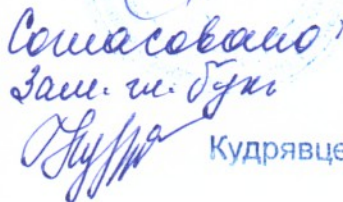 Согласовано
Зам. гл. бух
Кудрявце